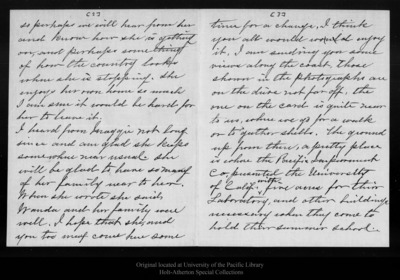 (2)
so perhaps we will hear from her
and know how she is getting
on, and perhaps some thing
of how the country looks
where she is stopping. She
enjoys her own home so much
I am sure it would be hard for
her to leave it.
I heard from Maggie not long
since and am glad she keeps
some where near usual she
will be glad to have so many
of her family near to her.
When she wrote she said
Wanda and her family were
well. I hope that she, and
you too may come here some
(3)
time for a change, I think
you all would enjoy
it. I am sending you some
views along the coast. Those
shown in the photographs are
on the drive not far off. the
one on the card is quite near
to us, where we go for a walk
or to gather shells. The ground
up from there, a pretty place
is where the Pacific Improvement
Co, presented the University
of Calif. with five acres for their
Laboratory, and other buildings
necessary when they come to
hold their summer school.
Original located at University of the Pacific Library
Holt-Atherton Special Collections